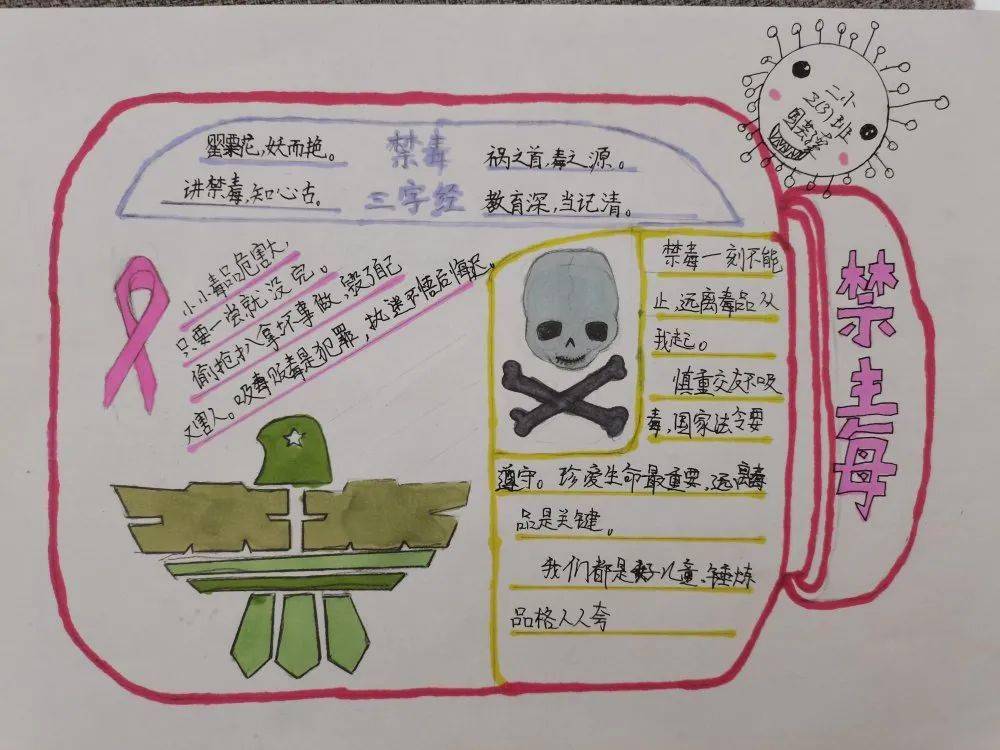 罂粟花，妖而艳。
禁毒
祸之首，毒之源。
讲禁毒，知心古。
三字经
教育深，当记清。
小小毒品危害大，
只要一尝就没完。
偷抢扒拿坏事做，毁了自己
又害人。吸毒贩毒是犯罪，执迷不悟后悔迟。
禁毒一刻不能
止，远离毒品从
我起。
慎重交友不吸
毒，国家法令要
遵守。珍爱生命最重要，远离毒
品是关键。
我们都是好儿童、锤炼
品格人人夸
禁毒
二小
2(3)班